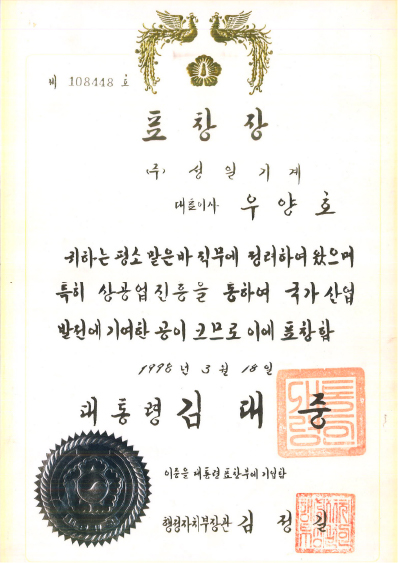 제 108448 호
표창장
(주) 성일기계
대표이사 우양호
귀하는 평소 맡은바 직무에 정려하여 왔으며
특히 상공업진흥을 통하여 국가산업
발전에 기여한 공이 크므로 이에 표창함
1998년 3월 18일
대통령 김대중
이증을 대통령표창부에 기입함
행정자치부장관 김정길